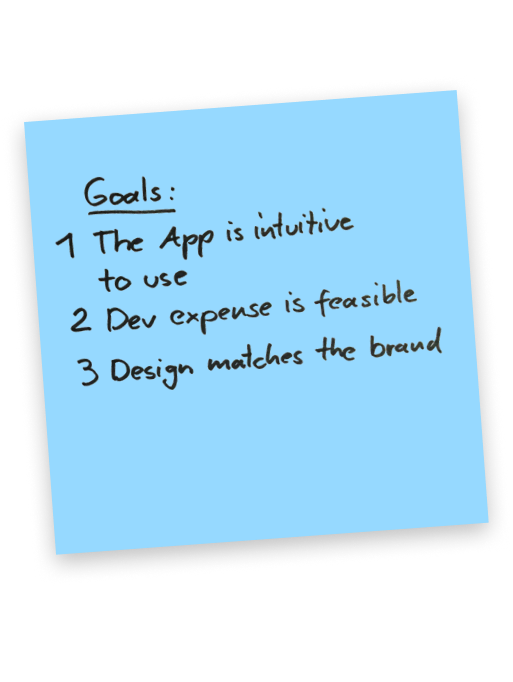 Goals:
1 The App is intuitive
to use
2 Dev expense is feasible
3 Design matches the brand